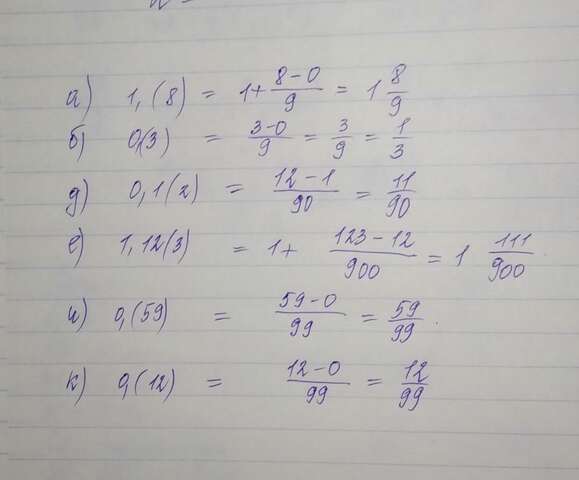 а) 1,(8) = 1+ (8-0)/9 = 1 8/9
б) 0,(3) = (3-0)/9 = 3/9 = 1/3
д) 0,1(2) = (12-1)/90 = 11/90
е) 1,12(3) = 1+ (123-12)/900 = 1 111/900
и) 0,(59) = (59-0)/99 = 59/99.
к) 0,(12) = (12-0)/99 = 12/99